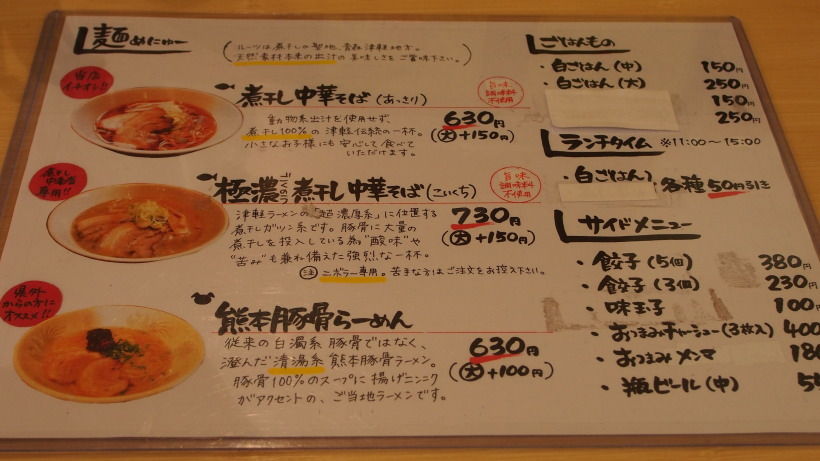 麺めにゅー
(ルーツは煮干しの聖地、青森津軽地方。
天然素材本来の出汁の美味しさをご賞味下さい。)
当店
イチオシ!!
煮干し中華そば(あっさり)
旨味
調味料
不使用
動物系出汁を使用せず、
煮干し100%の津軽伝統の一杯。
小さなお子様にも安心して食べて
いただけます。
630円
(大+150円)
煮干し
中毒者
専用!!
極濃煮干し中華そば(こいくち)
旨味
調味料
不使用
津軽ラーメンの"超濃厚系"に位置する
煮干しガツン系です。豚骨に大量の
煮干しを投入している為"酸味"や
"苦み"も兼ね備えた強烈な一杯。
注 ニボラー専用。苦手な方はご注文をお控え下さい。
730円
(大+150円)
県外
からの方に
オススメ!!
熊本豚骨らーめん
従来の白濁系豚骨ではなく、
澄んだ清湯系熊本豚骨ラーメン。
豚骨100%のスープに揚げニンニク
がアクセントの、ご当地ラーメンです。
630円
(大+100円)
ごはんもの
・白ごはん(中) 150円
・白ごはん(大) 250円
150円
250円
ランチタイム ※11:00~15:00
・白ごはん 各種50円引き
サイドメニュー
・餃子(5個) 380円
・餃子(3個) 230円
・味玉子 100円
・おつまみチャーシュー(3枚入) 400
・おつまみメンマ 180
・瓶ビール(中)